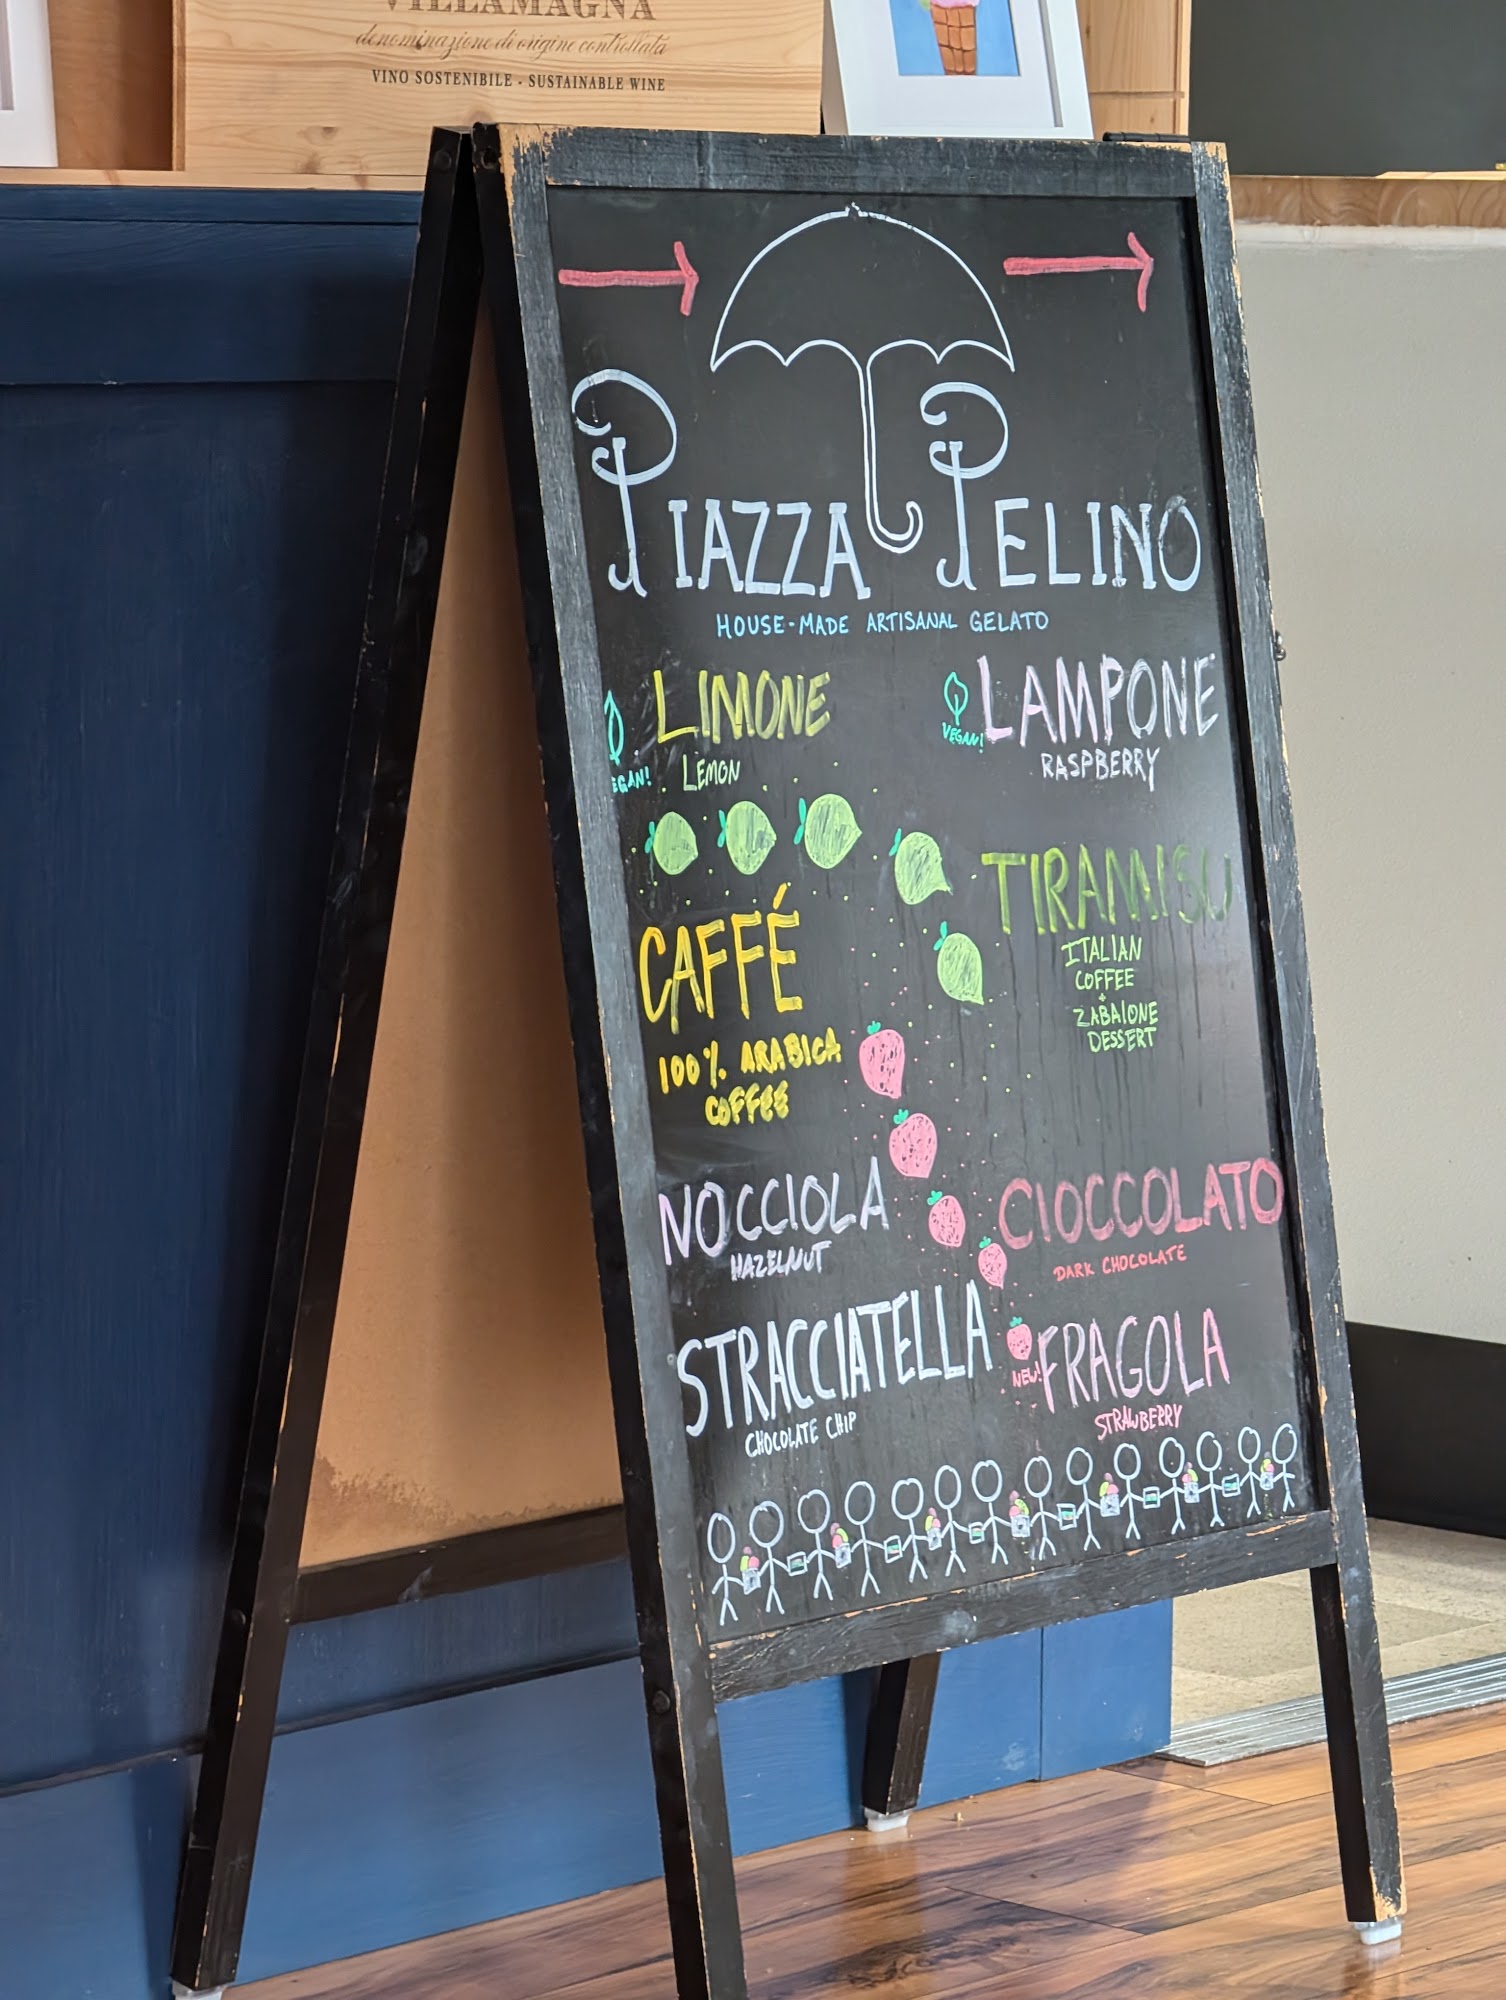 VILLAMAGNA
denominazione di origine controllata
VINO SOSTENIBILE - SUSTAINABLE WINE
PIAZZA PELINO
HOUSE-MADE ARTISANAL GELATO
EGAN!
LIMONE
LEMON
VEGAN!
LAMPONE
RASPBERRY
CAFFÉ
100% ARABICA
COFFEE
TIRAMISU
ITALIAN
COFFEE
+
ZABAIONE
DESSERT
NOCCIOLA
HAZELNUT
CIOCCOLATO
DARK CHOCOLATE
STRACCIATELLA
CHOCOLATE CHIP
NEW!
FRAGOLA
STRAWBERRY